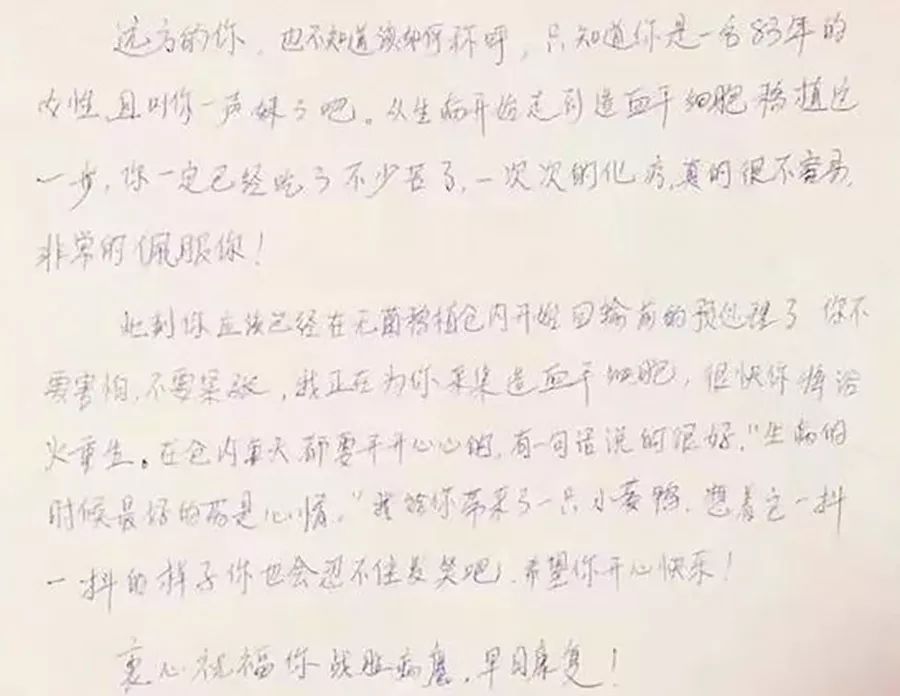 远方的你，也不知道该如何称呼，只知道你是一名83年的
女性，且叫你一声妹子吧。从生病开始走到造血干细胞移植这
一步，你一定已经吃了不少苦了，一次次的化疗，真的很不容易，
非常的佩服你！
此刻你应该已经在无菌移植仓内开始回输前的预处理了 你不
要害怕，不要紧张，我正在为你采集造血干细胞，很快你将浴
火重生。在仓内每天都要开开心心的，有一句话说的很好，“生病的
时候最好的药是心情。”我给你带来了一只小黄鸭，想着它一抖
一抖的样子你也会忍不住发笑吧，希望你开心快乐！
衷心祝福你战胜病魔，早日康复！